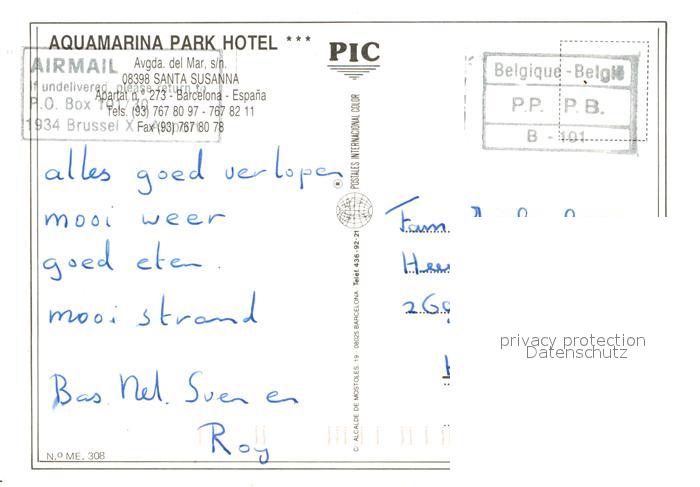 AQUAMARINA PARK HOTEL ***
Avgda. del Mar, s/n.
08398 SANTA SUSANNA
Apartat n.º 273 - Barcelona - España
Tels. (93) 767 80 97 - 767 82 11
Fax (93) 767 80 78
AIRMAIL
If undelivered, please return to
P.O. Box
1934 Brussel X
PIC
Belgique - België
P.P. P.B.
B - 101
alles goed verlopen
mooi weer
goed eten.
mooi strand
Bas. Nel. Sven en
Roy
POSTALES INTERNACIONAL COLOR
C/ ALCALDE DE MOSTOLES, 19 / 08025 BARCELONA Telef. 436-92-21
Fam
privacy protection
Datenschutz
N.º ME. 308